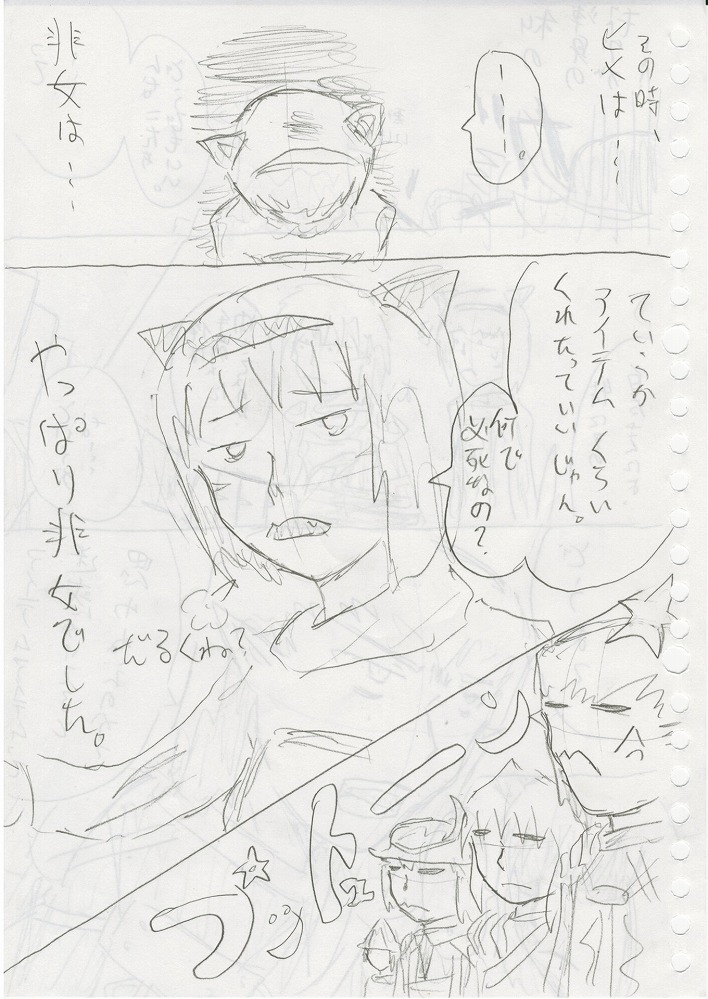 その時、
ヒメは…
…。
非女は…
ていうか
アイテムくらい
くれたっていいじゃん。
何で
必死なの?
だるくね?
やっぱり非女でした。
ブットゥーン